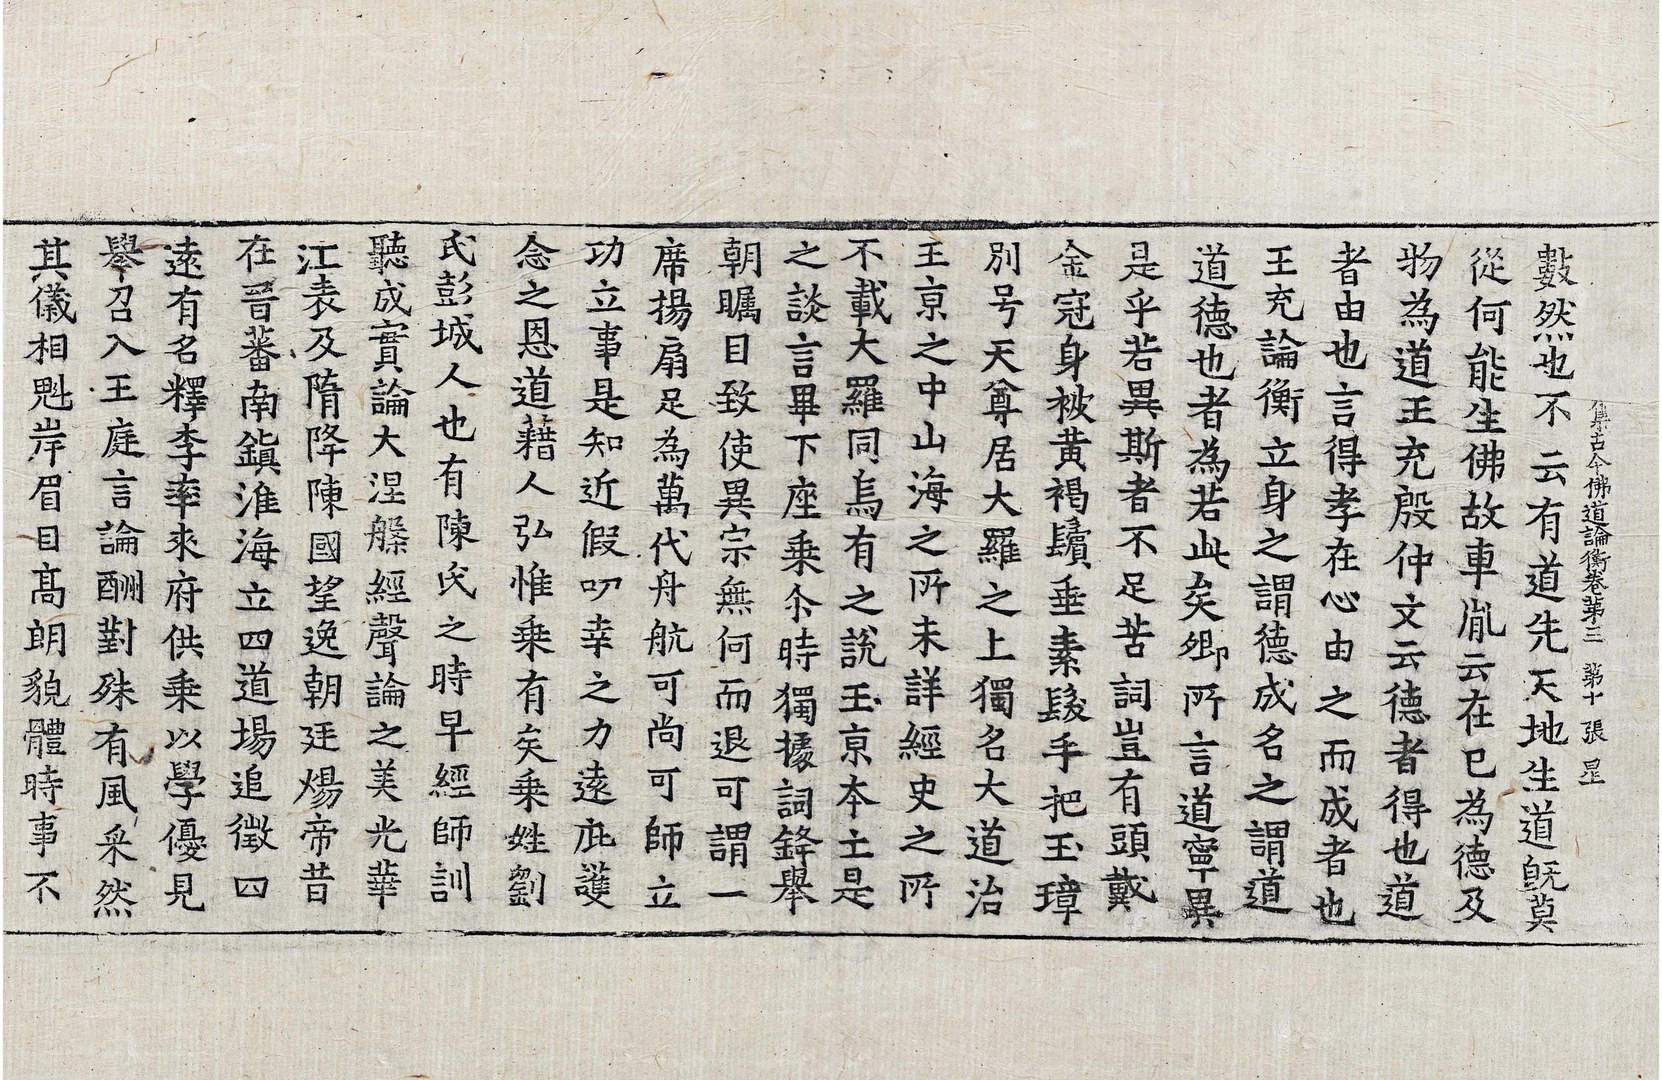 集古今佛道論衡卷第三　第十　張　㞷
數然也不云有道先天地生道旣莫
從何能生佛故車胤云在己為德及
物為道王充殷仲文云德者得也道
者由也言得孝在心由之而成者也
王充論衡立身之謂德成名之謂道
道德也者為若此矣卿所言道寧異
是乎若異斯者不足苦詞豈有頭戴
金冠身被黃褐鬚垂素髮手把玉璋
別号天尊居大羅之上獨名大道治
王京之中山海之所未詳經史之所
不載大羅同烏有之說玉京本土是
之談言畢下座乘尒時獨據詞鋒舉
朝矚目致使異宗無何而退可謂一
席揚扇足為萬代舟航可尚可師立
功立事是知近假叨幸之力遠庇護
念之恩道藉人弘惟乘有矣乘姓劉
氏彭城人也有陳氏之時早經師訓
聽成實論大涅槃經聲論之美光華
江表及隋降陳國望逸朝廷煬帝昔
在晉蕃南鎮淮海立四道場追徵四
遠有名釋李率來府供乘以學優見
舉召入王庭言論酬對殊有風采然
其儀相魁岸眉目高朗貌體時事不